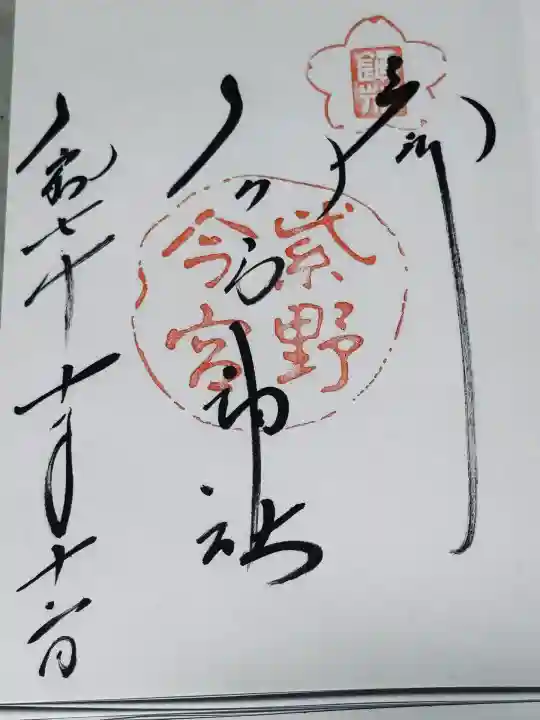 紫野
今宮
今宮神社
令和七年十月十六日